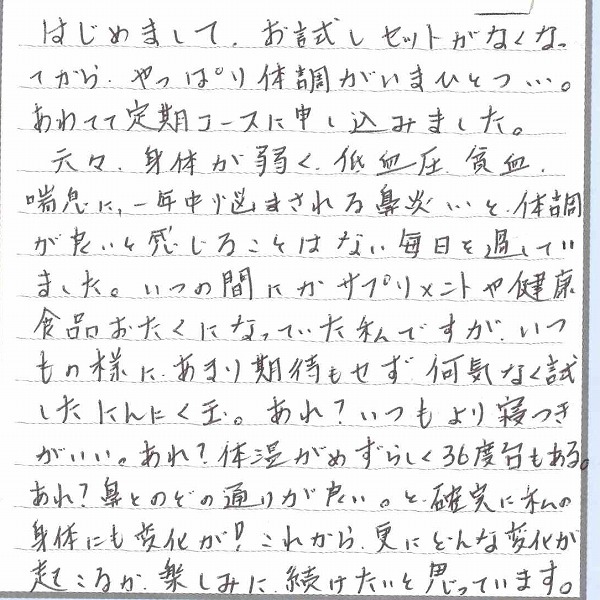 はじめまして、お試しセットがなくなっ
てから、やっぱり体調がいまひとつ…。
あわてて定期コースに申し込みました。
元々、身体が弱く、低血圧、貧血、
喘息に、一年中悩まされる鼻炎…と、体調
が良いと感じることはない毎日を過してい
ました。いつの間にかサプリメントや健康
食品おたくになっていた私ですが、いつ
もの様に、あまり期待もせず、何気なく試
したにんにく玉。あれ?いつもより寝つき
がいい。あれ?体温がめずらしく36度台もある。
あれ?鼻とのどの通りが良い。と、確実に私の
身体にも変化が!これから、更にどんな変化が
起こるか、楽しみに、続けたいと思っています。